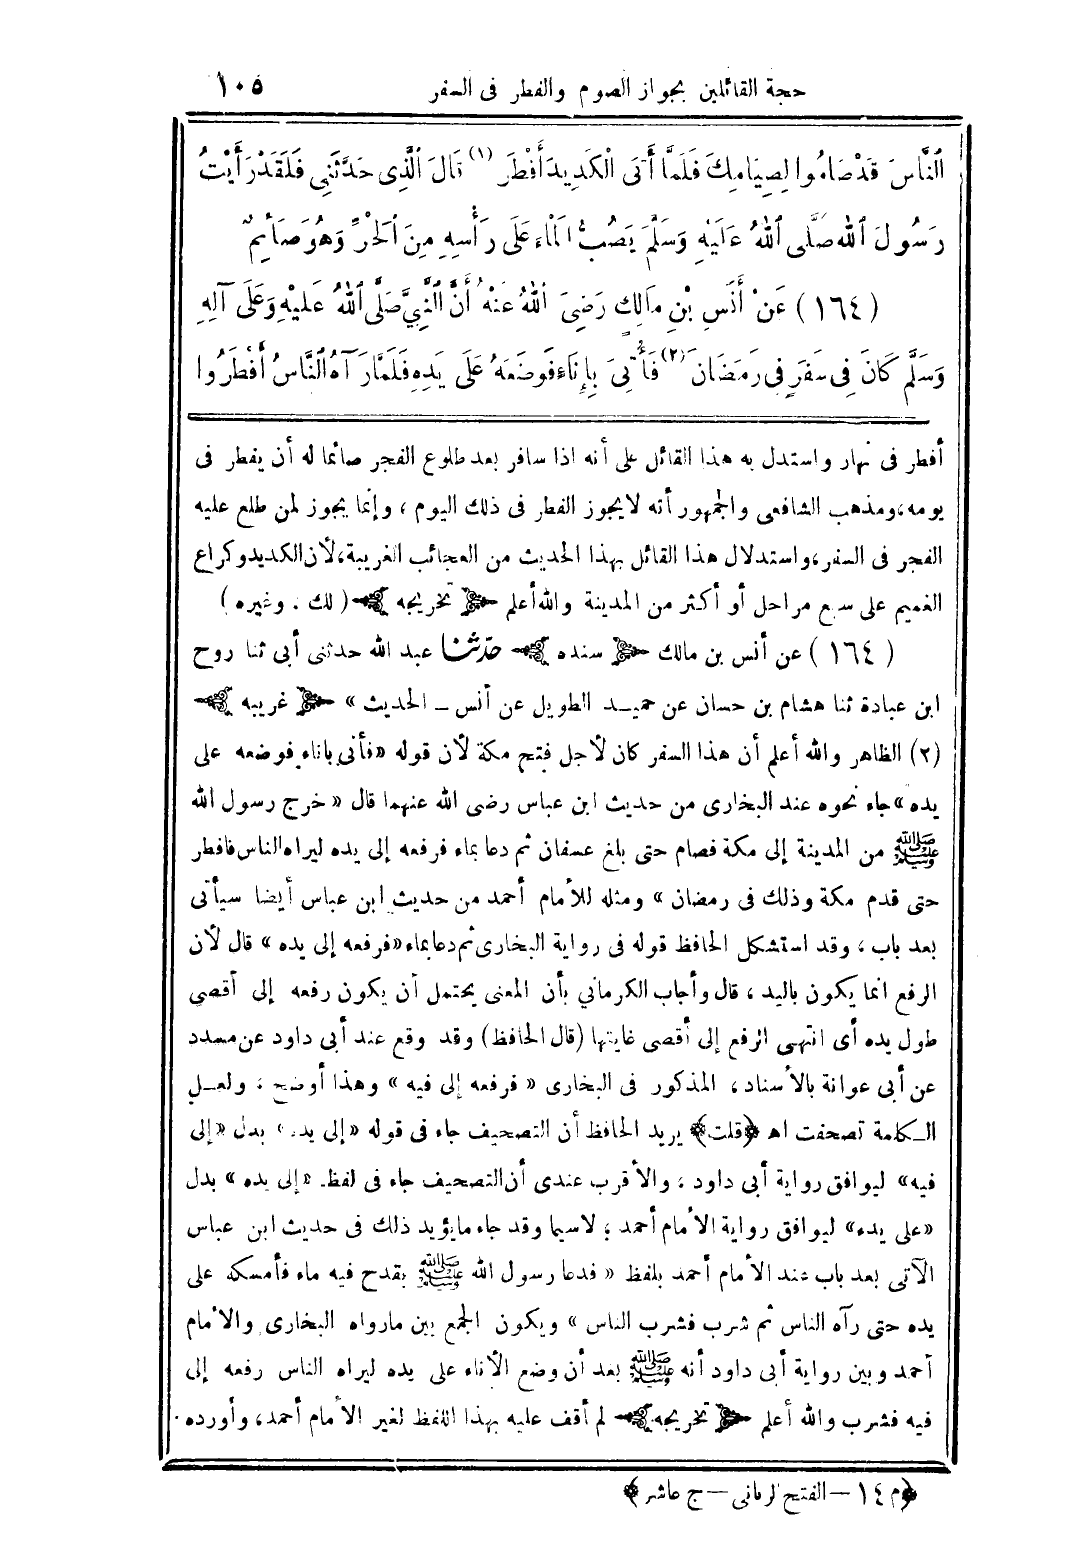 حجة القائلين بجواز الصوم والفطر فى السفر ١٠٥
ٱلنَّاسَ قَدْ صَامُوا لِصِيَامِكَ فَلَمَّا أَتَى الْكَدِيدَ أَفْطَرَ (١) قَالَ ٱلَّذِى حَدَّثَنِى فَلَقَدْ رَأَيْتُ
رَسُولَ ٱللهِ صَلَّى ٱللهُ عَلَيْهِ وَسَلَّمَ يَصُبُّ الْمَاءَ عَلَى رَأْسِهِ مِنَ ٱلْحَرِّ وَهُوَ صَائِمٌ
(١٦٤) عَنْ أَنَسِ بْنِ مَالِكٍ رَضِىَ ٱللهُ عَنْهُ أَنَّ ٱلنَّبِيَّ صَلَّى ٱللهُ عَلَيْهِ وَعَلَى آلِهِ
وَسَلَّمَ كَانَ فِى سَفَرٍ فِى رَمَضَانَ (٢) فَأُتِىَ بِإِنَاءٍ فَوَضَعَهُ عَلَى يَدِهِ فَلَمَّا رَآهُ ٱلنَّاسُ أَفْطَرُوا
أفطر فى نهار واستدل به هذا القائل على أنه اذا سافر بعد طلوع الفجر صائما له أن يفطر فى
يومه، ومذهب الشافعى والجمهور أنه لايجوز الفطر فى ذلك اليوم ، وإنما يجوز لمن طلع عليه
الفجر فى السفر، واستدلال هذا القائل بهذا الحديث من العجائب الغريبة، لأن الكديد وكراع
الغميم على سبع مراحل أو أكثر من المدينة والله أعلم ﴿ تخريجه ﴾ ( لك . وغيره )
(١٦٤) عن أنس بن مالك ﴿ سنده ﴾ حدّثنا عبد الله حدثنى أبى ثنا روح
ابن عبادة ثنا هشام بن حسان عن حميد الطويل عن أنس ــ الحديث » ﴿ غريبه ﴾
(٢) الظاهر والله أعلم أن هذا السفر كان لأجل فتح مكة لأن قوله «فأتى باناء فوضعه على
يده » جاء نحوه عند البخارى من حديث ابن عباس رضى الله عنهما قال « خرج رسول الله
ﷺ من المدينة إلى مكة فصام حتى بلغ عسفان ثم دعا بماء فرفعه إلى يده ليراه الناس فافطر
حتى قدم مكة وذلك فى رمضان » ومثله للأمام أحمد من حديث ابن عباس أيضا سيأتى
بعد باب ، وقد استشكل الحافظ قوله فى رواية البخارى ثم دعا بماء «فرفعه إلى يده » قال لأن
الرفع انما يكون باليد ، قال وأجاب الكرماني بأن المعنى يحتمل أن يكون رفعه إلى أقصى
طول يده أى انتهى الرفع إلى أقصى غايتها (قال الحافظ) وقد وقع عند أبى داود عن مسدد
عن أبى عوانة بالأسناد، المذكور فى البخارى « فرفعه إلى فيه » وهذا أوضح ، ولعل
الكلمة تصحفت اه ﴿قلت﴾ يريد الحافظ أن التصحيف جاء فى قوله «إلى يده» بدل «إلى
فيه» ليوافق رواية أبى داود ، والأقرب عندى أن التصحيف جاء فى لفظ «إلى يده » بدل
«على يده» ليوافق رواية الأمام أحمد ؛ لاسيما وقد جاء مايؤيد ذلك فى حديث ابن عباس
الآتى بعد باب عند الأمام أحمد بلفظ « فدعا رسول الله ﷺ بقدح فيه ماء فأمسكه على
يده حتى رآه الناس ثم شرب فشرب الناس » ويكون الجمع بين مارواه البخارى والأمام
أحمد وبين رواية أبى داود أنه ﷺ بعد أن وضع الأناء على يده ليراه الناس رفعه إلى
فيه فشرب والله أعلم ﴿ تخريجه ﴾ لم أقف عليه بهذا اللفظ لغير الأمام أحمد، وأورده
﴿م ١٤ — الفتح الربانى — ج عاشر ﴾